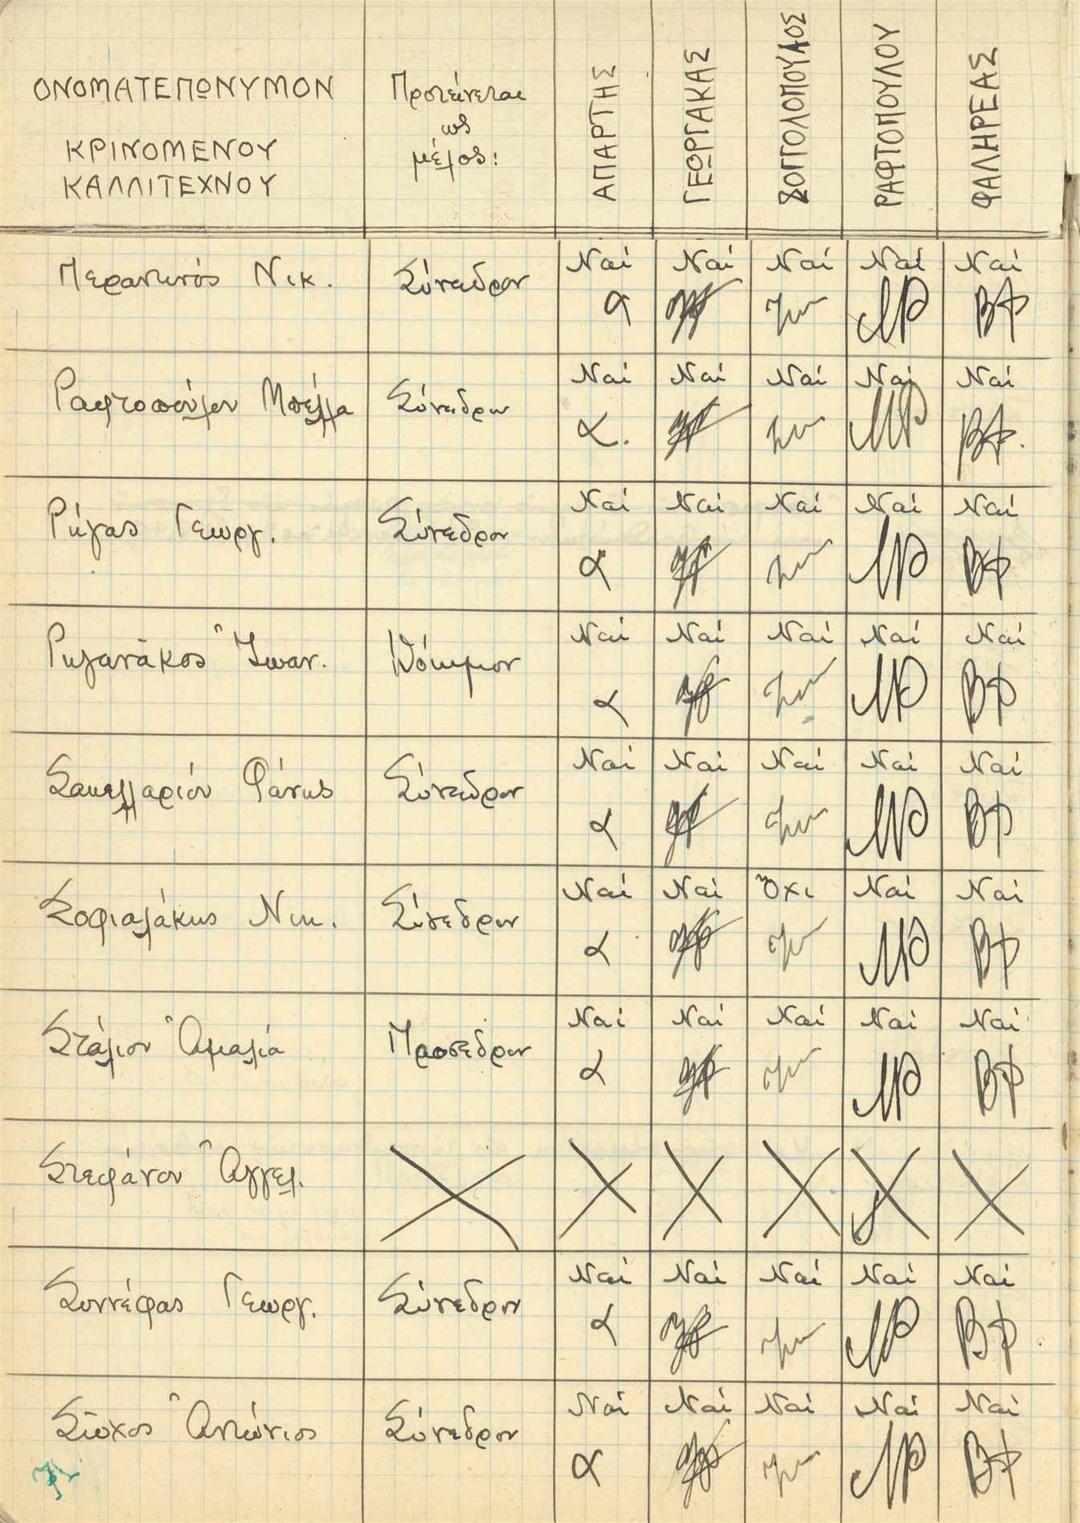 ΟΝΟΜΑΤΕΠΩΝΥΜΟΝ
ΚΡΙΝΟΜΕΝΟΥ
ΚΑΛΛΙΤΕΧΝΟΥ
Προτείνεται
ως
μέλος:
ΑΠΑΡΤΗΣ
ΓΕΩΡΓΑΚΑΣ
ΖΟΓΓΟΛΟΠΟΥΛΟΣ
ΡΑΦΤΟΠΟΥΛΟΥ
ΦΑΛΗΡΕΑΣ
Περαντινός Νικ. Σύνεδρον Ναί Ναί Ναί Ναί Ναί
α ΒΦ
Ραφτοπούλου Μπέλλα Σύνεδρον Ναί Ναί Ναί Ναί Ναί
α. ΒΦ.
Ρήγας Γεωργ. Σύνεδρον Ναί Ναί Ναί Ναί Ναί
α ΒΦ
Ρηγανᾶκος Ἰωαν. Δόκιμον Ναί Ναί Ναί Ναί Ναί
α ΒΦ
Σακελλαρίου Φάνης Σύνεδρον Ναί Ναί Ναί Ναί Ναί
α ΒΦ
Σοφιαλάκης Νικ. Σύνεδρον Ναί Ναί Ὄχι Ναί Ναί
α ΒΦ
Στάλιου Ἀμαλία Πάρεδρον Ναί Ναί Ναί Ναί Ναί
α ΒΦ
Στεφάνου Ἀγγελ.
Συννέφας Γεωργ. Σύνεδρον Ναί Ναί Ναί Ναί Ναί
α ΒΦ
Σῶχος Ἀντώνιος Σύνεδρον Ναί Ναί Ναί Ναί Ναί
α ΒΦ